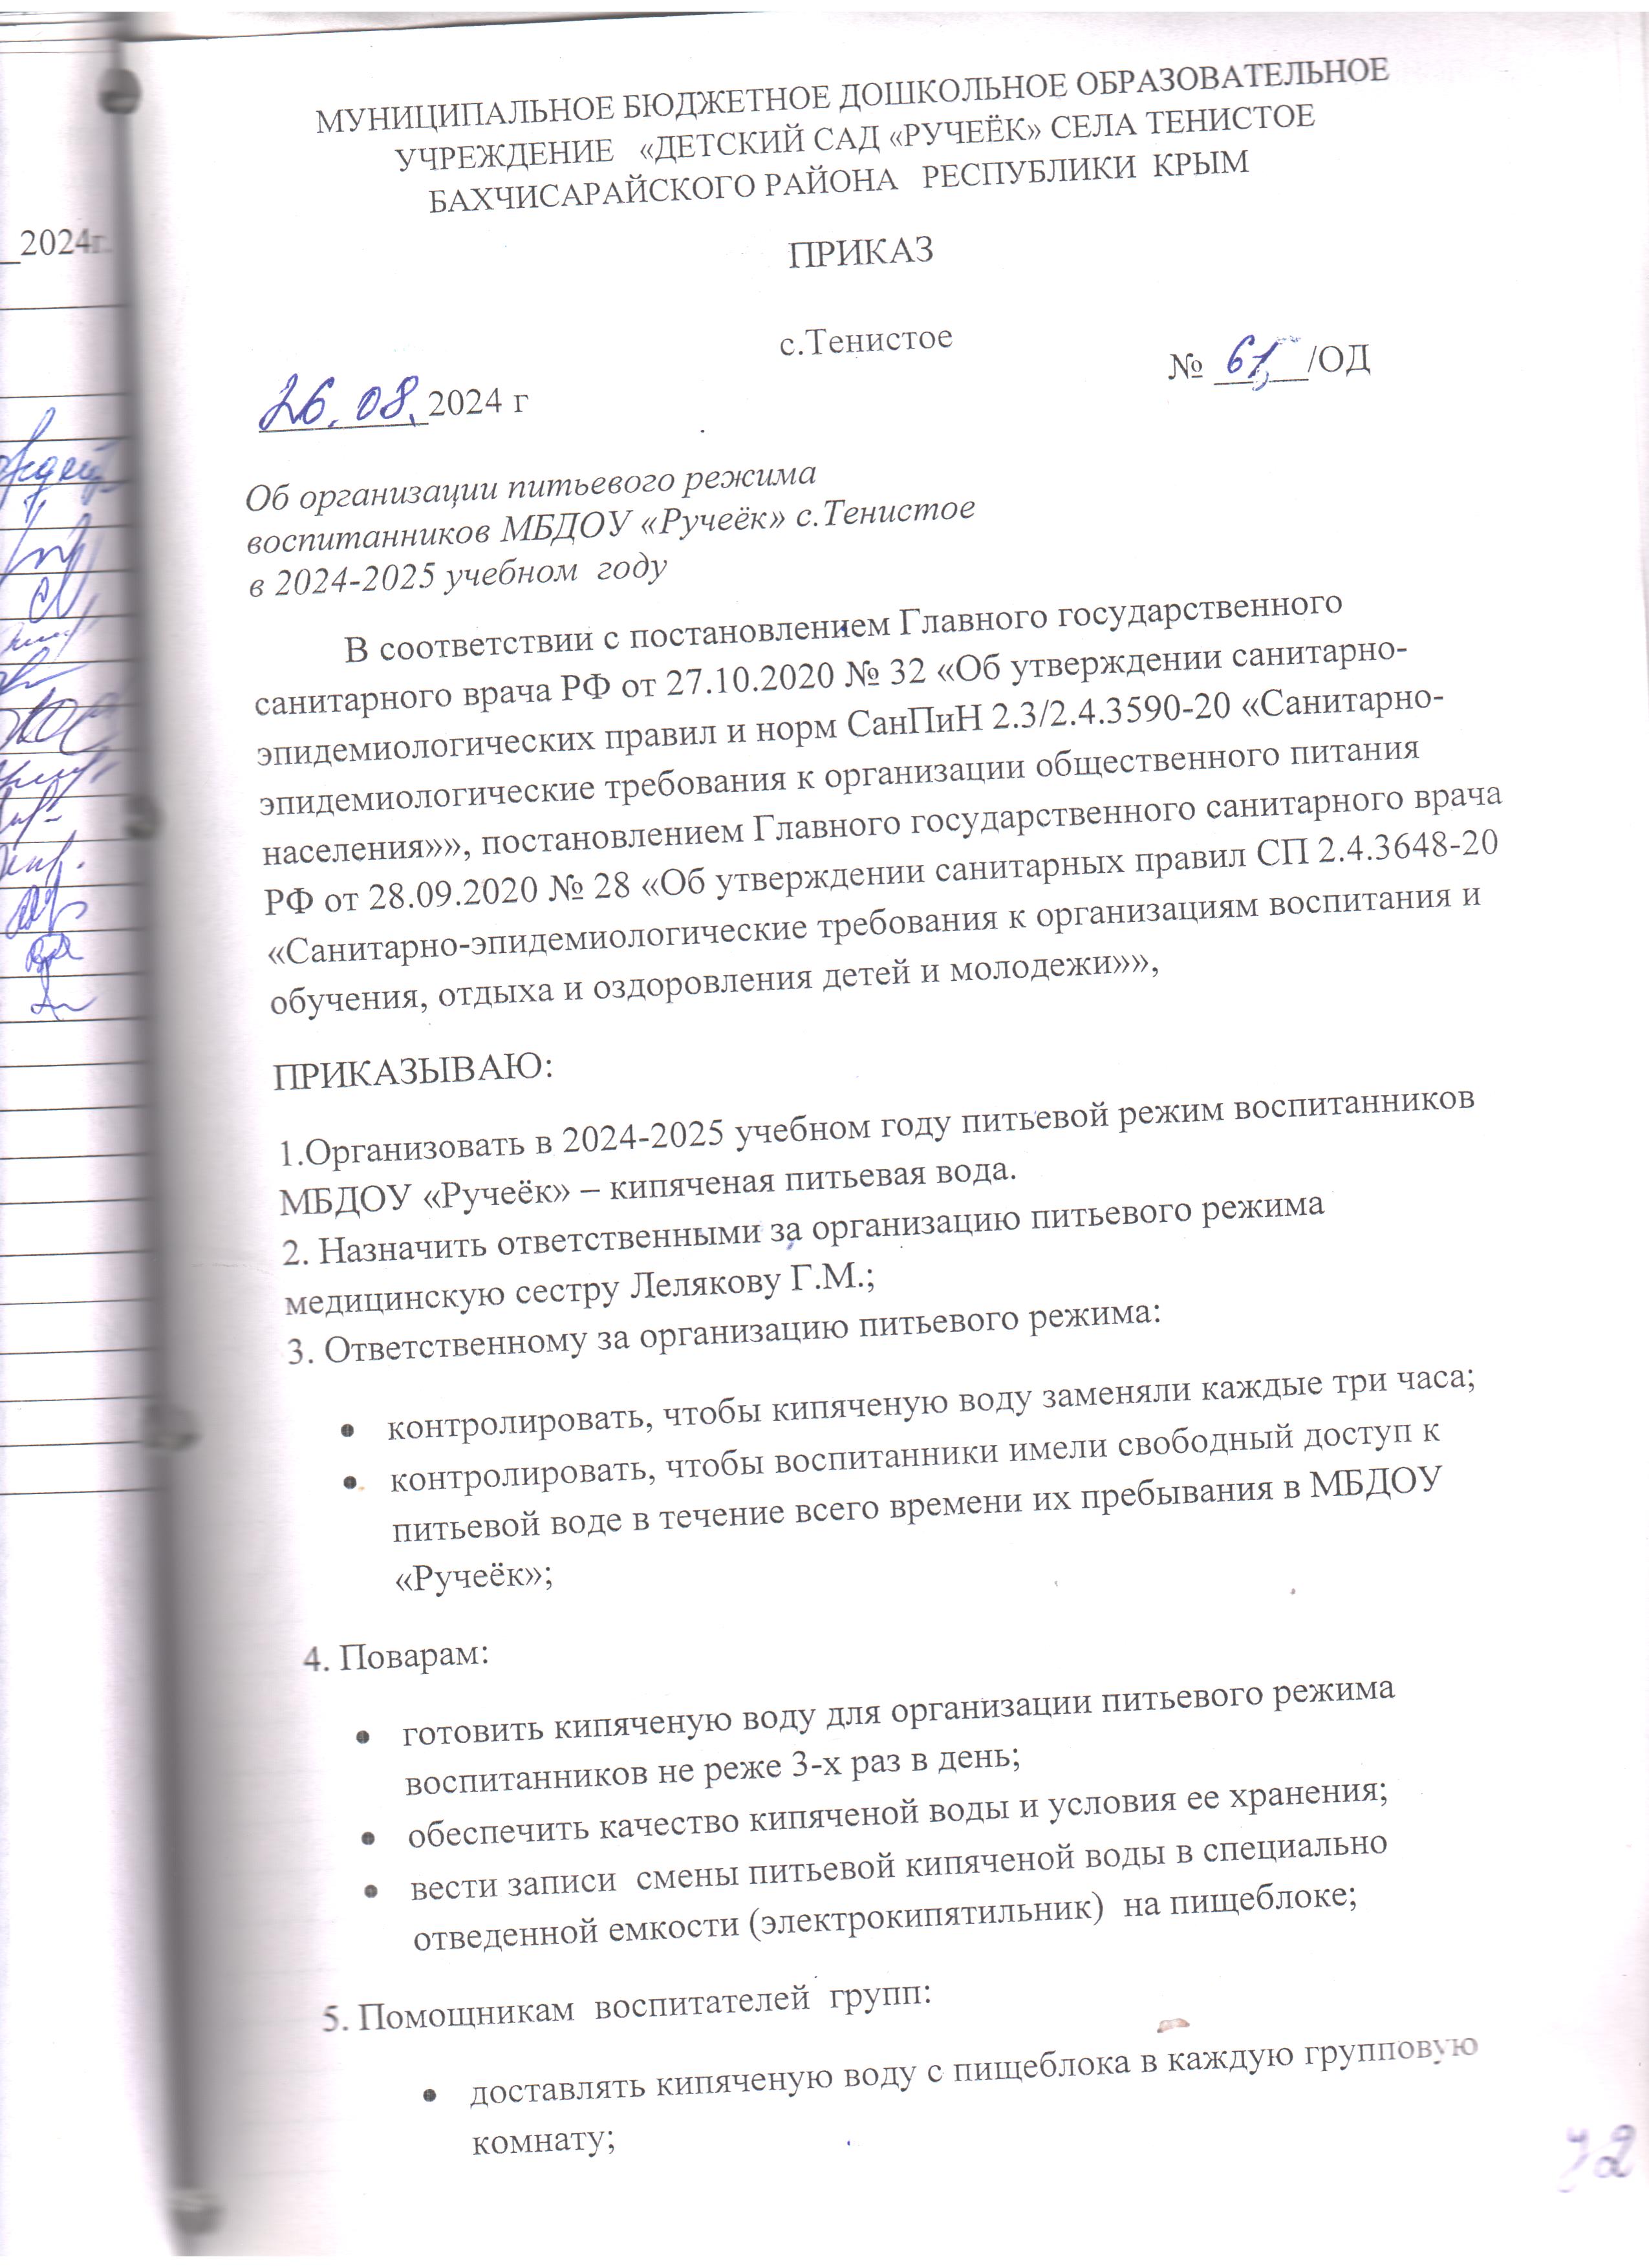 МУНИЦИПАЛЬНОЕ БЮДЖЕТНОЕ ДОШКОЛЬНОЕ ОБРАЗОВАТЕЛЬНОЕ
УЧРЕЖДЕНИЕ «ДЕТСКИЙ САД «РУЧЕЁК» СЕЛА ТЕНИСТОЕ
БАХЧИСАРАЙСКОГО РАЙОНА РЕСПУБЛИКИ КРЫМ
ПРИКАЗ
_2024г.
с.Тенистое
26.08.2024 г № 61/ОД
Об организации питьевого режима
воспитанников МБДОУ «Ручеёк» с.Тенистое
в 2024-2025 учебном году
В соответствии с постановлением Главного государственного
санитарного врача РФ от 27.10.2020 № 32 «Об утверждении санитарно-
эпидемиологических правил и норм СанПиН 2.3/2.4.3590-20 «Санитарно-
эпидемиологические требования к организации общественного питания
населения»», постановлением Главного государственного санитарного врача
РФ от 28.09.2020 № 28 «Об утверждении санитарных правил СП 2.4.3648-20
«Санитарно-эпидемиологические требования к организациям воспитания и
обучения, отдыха и оздоровления детей и молодежи»»,
ПРИКАЗЫВАЮ:
1.Организовать в 2024-2025 учебном году питьевой режим воспитанников
МБДОУ «Ручеёк» – кипяченая питьевая вода.
2. Назначить ответственными за организацию питьевого режима
медицинскую сестру Лелякову Г.М.;
3. Ответственному за организацию питьевого режима:
• контролировать, чтобы кипяченую воду заменяли каждые три часа;
• контролировать, чтобы воспитанники имели свободный доступ к
питьевой воде в течение всего времени их пребывания в МБДОУ
«Ручеёк»;
4. Поварам:
• готовить кипяченую воду для организации питьевого режима
воспитанников не реже 3-х раз в день;
• обеспечить качество кипяченой воды и условия ее хранения;
• вести записи смены питьевой кипяченой воды в специально
отведенной емкости (электрокипятильник) на пищеблоке;
5. Помощникам воспитателей групп:
• доставлять кипяченую воду с пищеблока в каждую групповую
комнату;